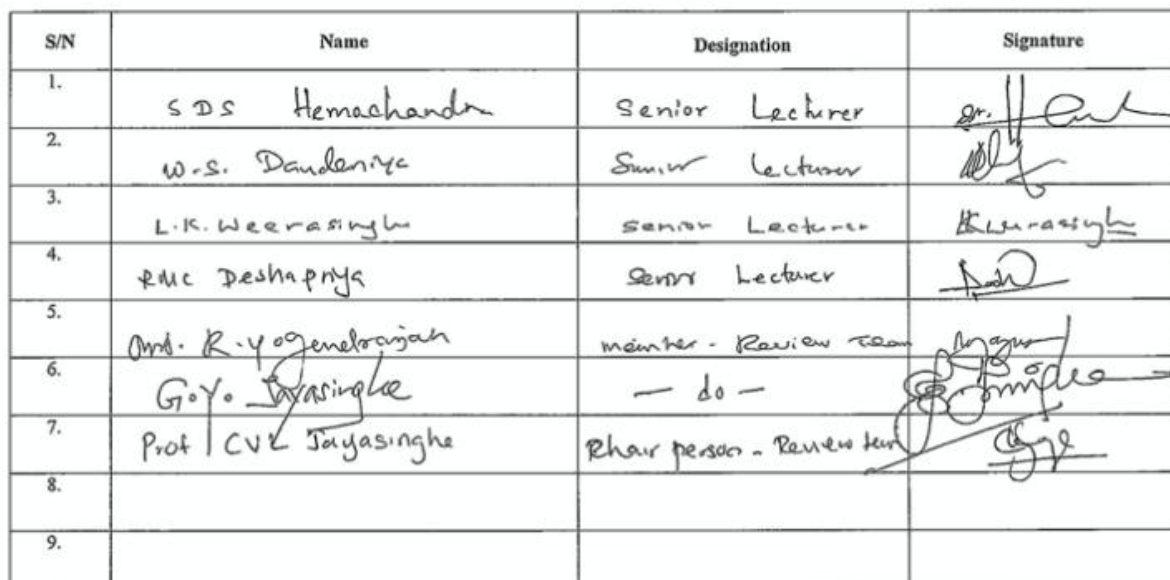 S/N Name Designation Signature
1. SDS Hemachandra Senior Lecturer
2. W.S. Dandeniya Senior Lecturer
3. L.K. Weerasinghe Senior Lecturer LKWeerasinghe
4. RMC Deshapriya Senior Lecturer
5. R. Yogendrarajah member - Review Team
6. G.Y. Jayasinghe - do -
7. Prof CVL Jayasinghe Chair person - Review team
8.
9.